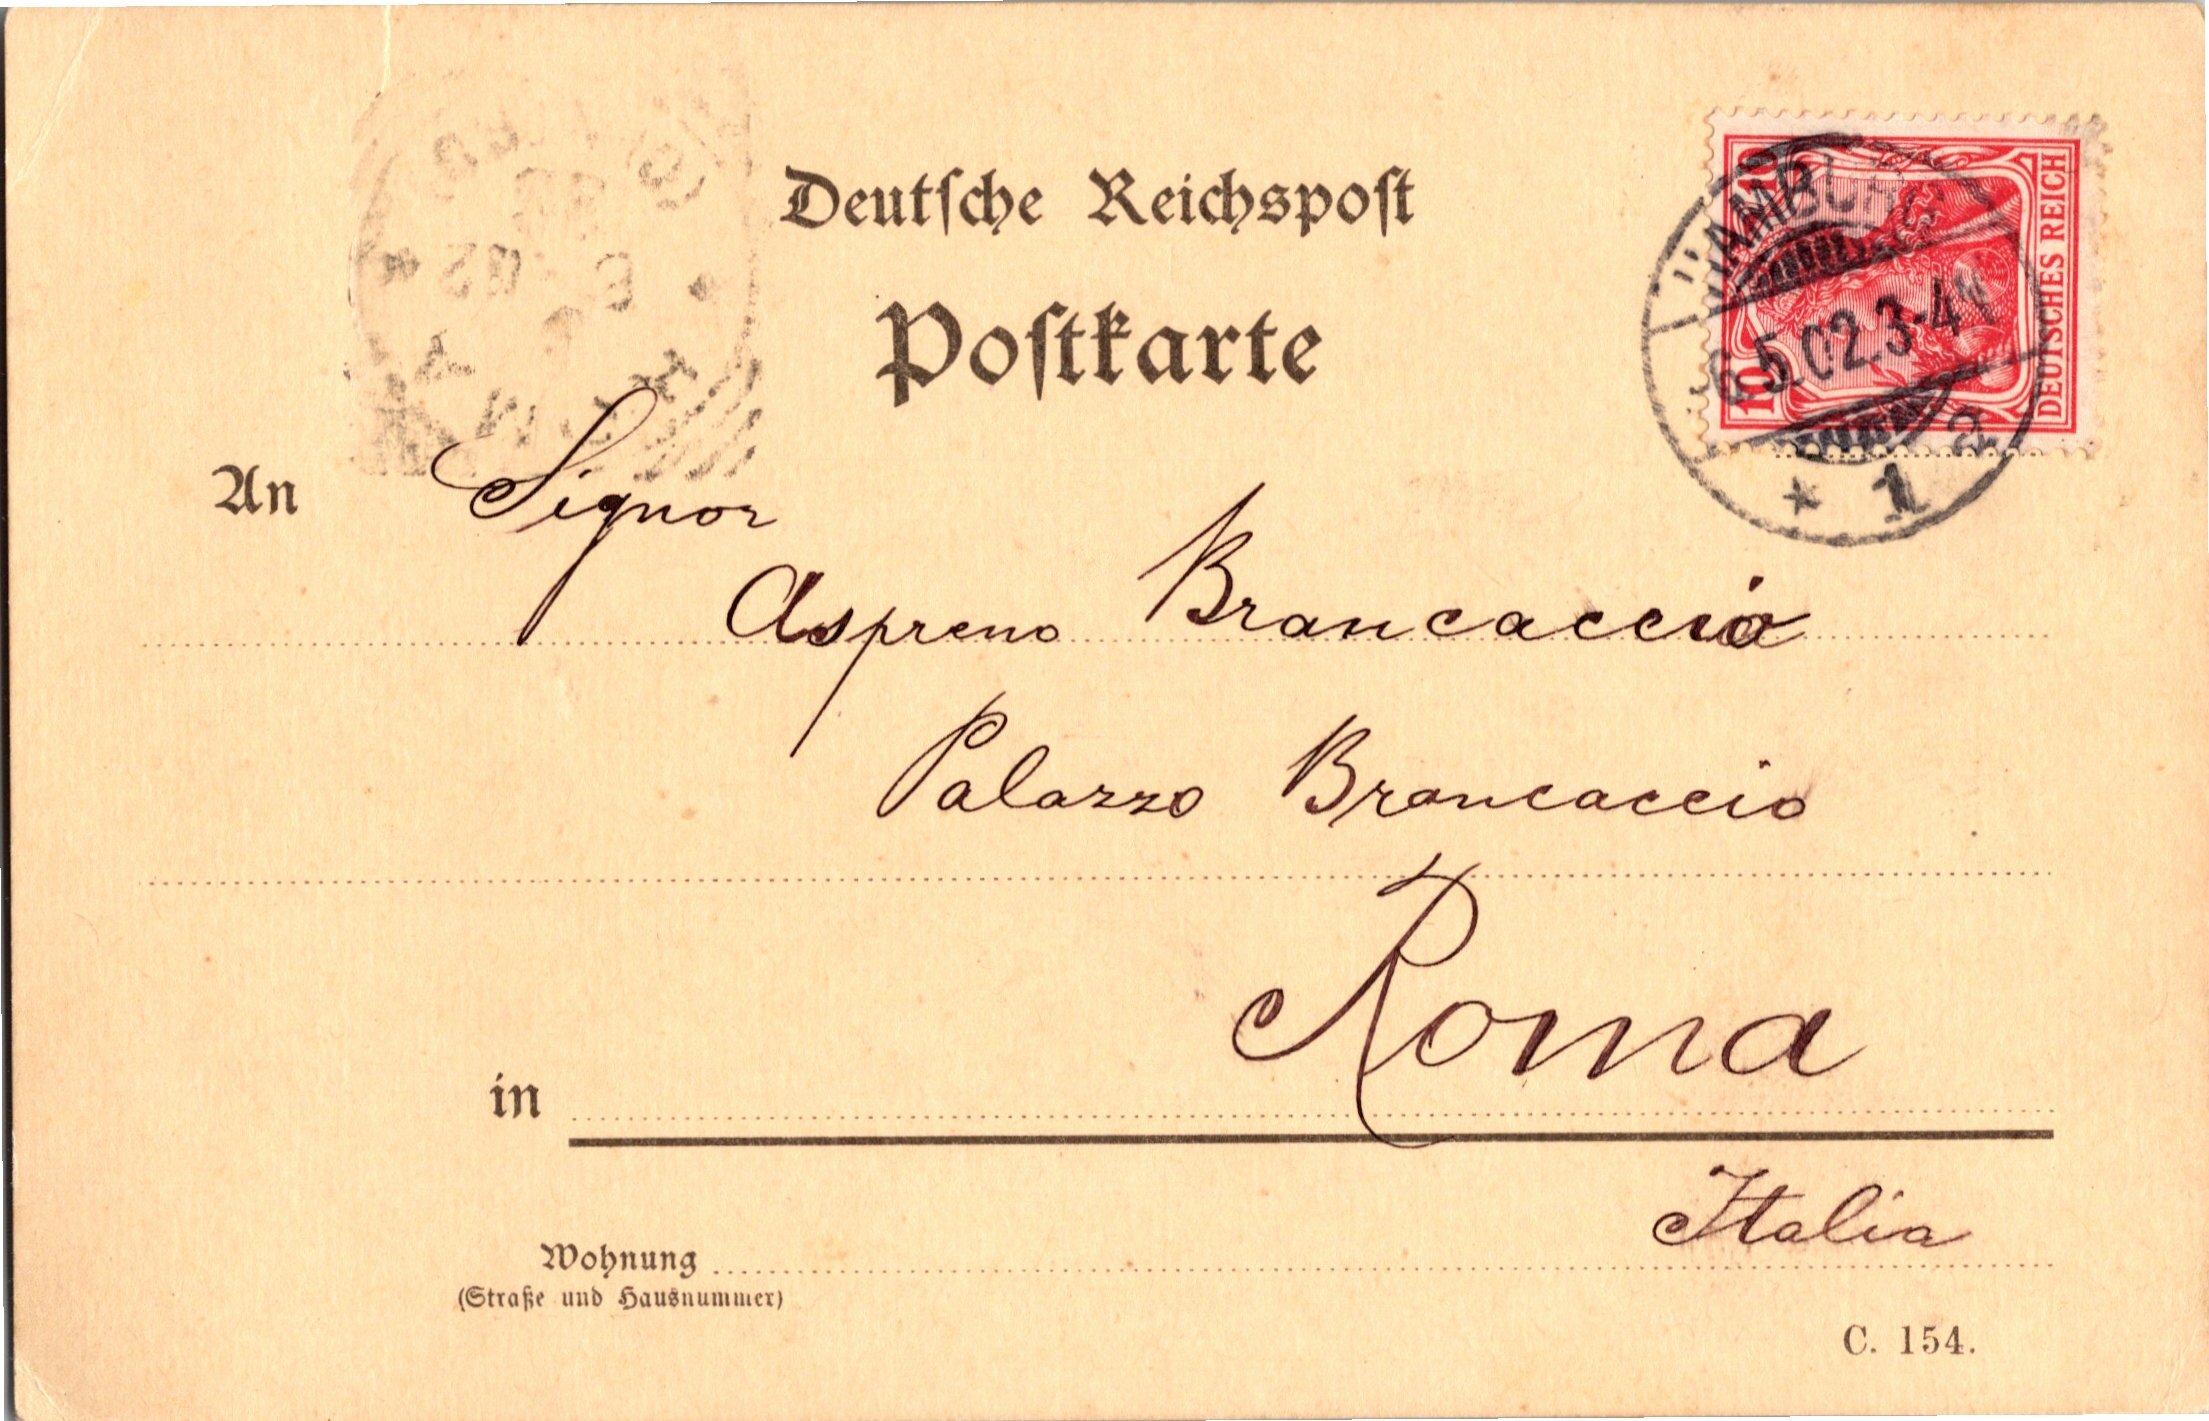 Deutsche Reichspost
Postkarte
10 10
DEUTSCHES REICH
HAMBURG
6.5.02.3-4N
* 1 a
02
An Signor
Aspreno Brancaccio
Palazzo Brancaccio
in Roma
Italia
Wohnung
(Straße und Hausnummer)
C. 154.